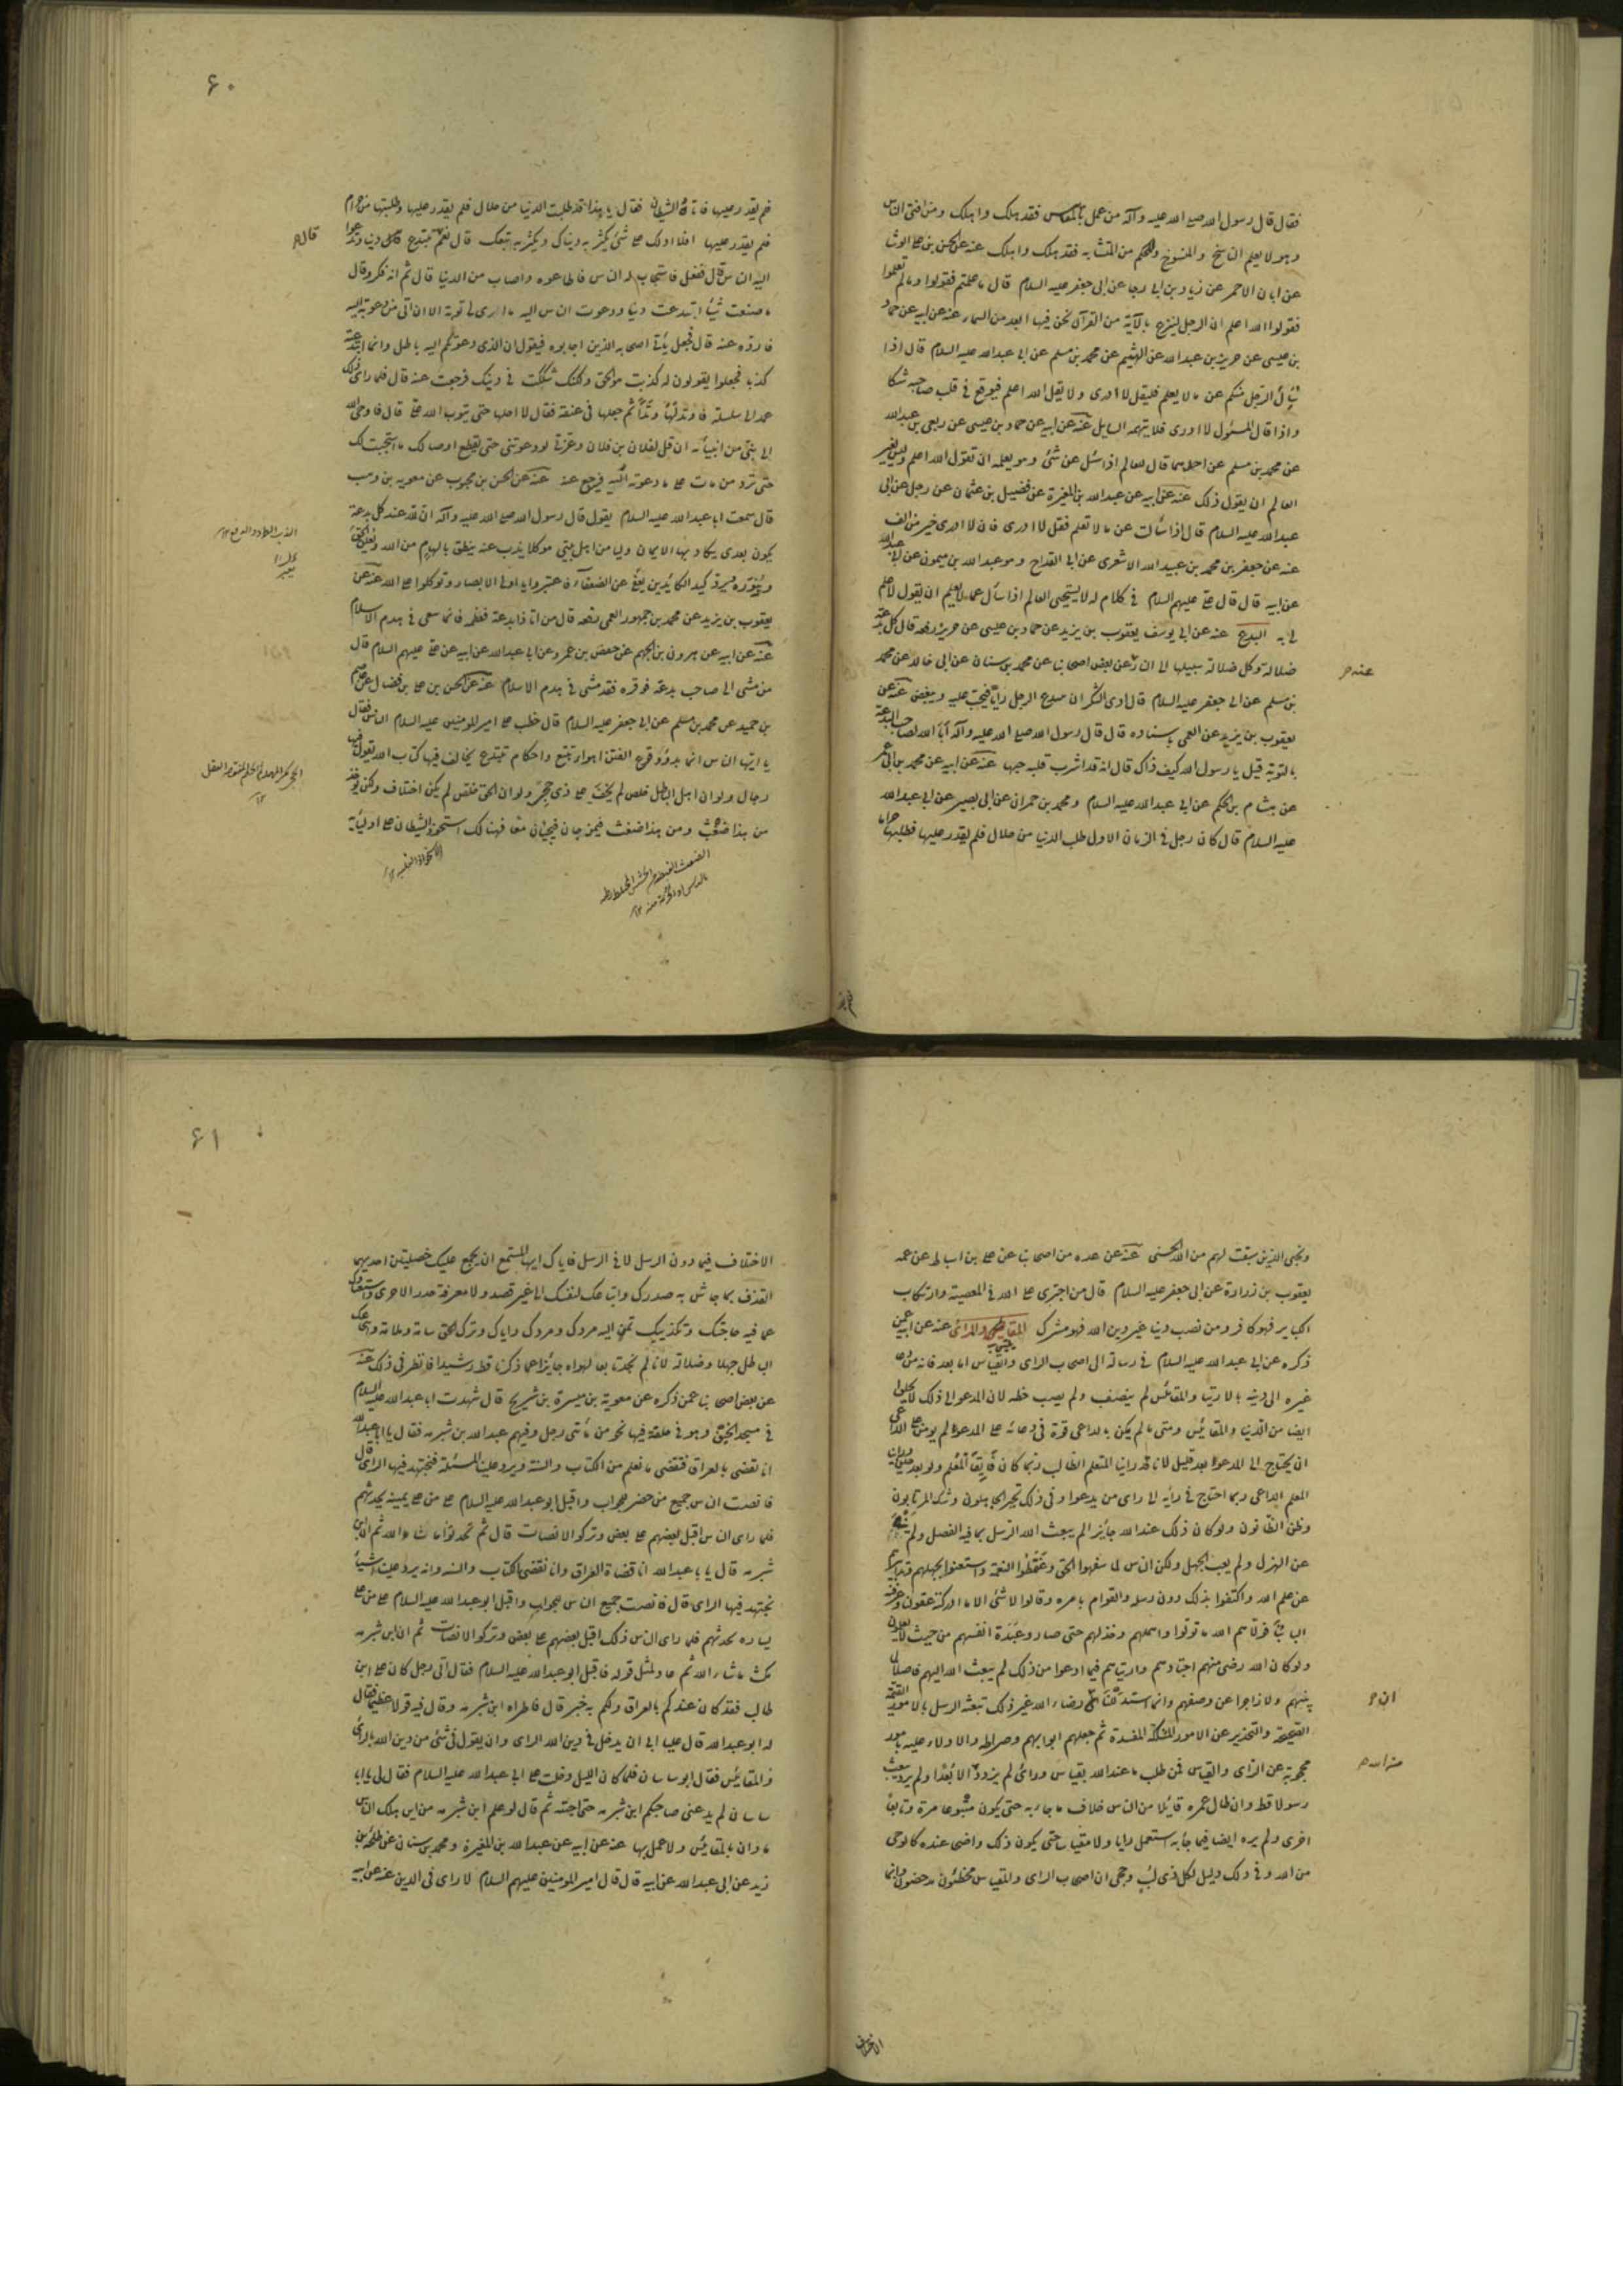 فقال قال رسول الله صلى الله عليه وآله من عمل بالمقاييس فقد هلك واهلك ومن افتى الناس
وهو لا يعلم الناسخ والمنسوخ والمحكم من المتشابه فقد هلك واهلك عنه عن الحسن بن على الوشا
عن ابان الاحمر عن زياد بن ابى رجا عن ابى جعفر عليه السلام قال ما علمتم فقولوا وما لم تعلموا
فقولوا الله اعلم ان الرجل لينزع بالآية من القرآن يخر فيها ابعد من السماء عنه عن ابيه عن حماد
بن عيسى عن حريز بن عبدالله عن الهيثم عن محمد بن مسلم عن ابى عبدالله عليه السلام قال اذا
سئل الرجل منكم عن ما لا يعلم فليقل لا ادرى ولا يقل الله اعلم فيوقع فى قلب صاحبه شكا
واذا قال المسئول لا ادرى فلا يتهمه السايل عنه عن ابيه عن حماد بن عيسى عن ربعى بن عبدالله
عن محمد بن مسلم عن احدهما قال للعالم اذا سئل عن شئ وهو يعلمه ان تقول الله اعلم وليس لغير
العالم ان يقول ذلك عنه عن ابيه عن عبدالله بن المغيرة عن فضيل بن عثمان عن رجل عن ابى
عبدالله عليه السلام قال اذا سألت عن ما لا تعلم فقل لا ادرى فان لا ادرى خير من الف
عنه عن جعفر بن محمد بن عبيد الله الاشعرى عن ابن القداح وهو عبدالله بن ميمون عن ابى عبدالله
عن ابيه قال قال على عليهم السلام فى كلام له لا يستحيى العالم اذا سأل عما لا يعلم ان يقول لا علم
لى به البدع عنه عن ابى يوسف يعقوب بن يزيد عن حماد بن عيسى عن حريز رفعه قال كل بدعة
ضلالة وكل ضلالة سبيلها الى النار عن بعض اصحابنا عن محمد بن سنان عن ابى خالد عن محمد
عنه م
بن مسلم عن ابى جعفر عليه السلام قال ادنى الشرك ان يبتدع الرجل رايا فيحب عليه ويبغض عنه عن
يعقوب بن يزيد عن العمى باسناده قال قال رسول الله صلى الله عليه وآله ابا الله لصاحب البدعة
بالتوبة قيل يا رسول الله كيف ذاك قال انه قد اشرب قلبه حبها عنه عن ابيه عن محمد بن ابى عمير
عن هشام بن الحكم عن ابى عبدالله عليه السلام ومحمد بن حمران عن ابى بصير عن ابى عبدالله
عليه السلام قال كان رجل فى الزمان الاول طلب الدنيا من حلال فلم يقدر عليها فطلبها حراما
۶۰
فلم يقدر عليها فاتاه الشيطان فقال يا هذا قد طلبت الدنيا من حلال فلم يقدر عليها وطلبتها من حرام
فلم يقدر عليها افلا ادلك على شئ يكثر به دنياك ويكثر به تبعك قال نعم تبتدع دينا وتدعوا
قال م
اليه الناس قال ففعل فاستجاب له الناس فاطاعوه واصاب من الدنيا قال ثم انه فكر وقال
ما صنعت شيئا ابتدعت دينا ودعوت الناس اليه ما ارى لى توبة الا ان اتى من دعوته اليه
فارده عنه قال فجعل يأتى اصحابه الذين اجابوه فيقول ان الذى دعوتكم اليه باطل وانما ابتدعته
كذبا فجعلوا يقولون له كذبت هو الحق ولكنك شككت فى دينك فرجعت عنه قال فلما راى ذلك
عمد الى سلسلة فاوتد لها وتدا ثم جعلها فى عنقه فقال لا احلها حتى يتوب الله على قال فاوحى الله
الى نبى من انبيائه ان قل لفلان بن فلان وعزتى لو دعوتنى حتى يقطع اوصالك ما استجبت لك
حتى ترد من مات على ما دعوته اليه فيرجع عنه عنه عن الحسن بن محبوب عن معوية بن وهب
قال سمعت ابا عبدالله عليه السلام يقول قال رسول الله صلى الله عليه وآله ان لله عند كل بدعة
يكون بعدى يكاد بها الايمان وليا من اهل بيتى موكلا يذب عنه ينطق بالهام من الله ويعلن الحق
وينوره ويرد كيد الكائدين يعبر عن الضعفاء فاعتبروا يا اولى الابصار وتوكلوا على الله عنه عن
يعقوب بن يزيد عن محمد بن جمهور العمى رفعه قال من اتا ذا بدعة فعظمه فانما سعى فى هدم الاسلام
عنه عن ابيه عن هرون بن الجهم عن حفص بن عمرو عن ابى عبدالله عن ابيه عن على عليهم السلام قال
من مشى الى صاحب بدعة فوقره فقد مشى فى هدم الاسلام عنه عن الحسن بن على بن فضال عن عاصم
بن حميد عن محمد بن مسلم عن ابى جعفر عليه السلام قال خطب على امير المومنين عليه السلام الناس فقال
يا ايها الناس انما بدؤ وقوع الفتن اهوآء تتبع واحكام تبتدع يخالف فيها كتاب الله تقول فيها
رجال ولو ان اهل الباطل خلص لم يخف على ذى حجى ولو ان الحق خلص لم يكن اختلاف ولكن يؤخذ
من هذا ضغث ومن هذا ضغث فيمزجان فيجيئان معا فهنالك استحوذ الشيطان على اوليائه
ونجى الذين سبقت لهم من الله الحسنى عنه عن عدة من اصحابنا عن على بن اسباط عن عمه
يعقوب بن زرارة عن ابى جعفر عليه السلام قال من اجترى على الله فى المعصية وارتكاب
الكباير فهو كافر ومن نصب دينا غير دين الله فهو مشرك المقاييس والراى عنه عن ابيه عمن
ذكره عن ابى عبدالله عليه السلام فى رسالة الى اصحاب الراى والقياس اما بعد فانه من دعا
غيره الى دينه بالارتيا والمقائس لم ينصف ولم يصب حظه لان المدعو الى ذلك لا يخلوا
ايضا من الارتيا والمقائيس ومتى ما لم يكن بالداعى قوة فى دعائه على المدعو لم يومن على الداعى
ان يحتاج الى المدعو بعد قليل لانا قد راينا المتعلم الطالب ربما كان فايقا لمعلم ولو بعد حين وراينا
المعلم الداعى ربما احتاج فى رأيه الى راى من يدعوا وفى ذلك تحير الجاهلون وشك المرتابون
وظن الظانون ولو كان ذلك عند الله جايزا لم يبعث الله الرسل بما فيه الفصل ولم ينه
عن الهزل ولم يعب الجهل ولكن الناس لما سفهوا الحق وغمطوا النعمة واستغنوا بجهلهم وتدابيرهم
عن علم الله واكتفوا بذلك دون رسله والقوام بامره وقالوا لا شئ الا ما ادركته عقولنا وعرفته
البابنا فولاهم الله ما تولوا واهملهم وخذلهم حتى صاروا عبدة انفسهم من حيث لا يعلمون
ولو كان الله رضى منهم اجتهادهم وارتياهم فيما ادعوا من ذلك لم يبعث الله اليهم فاصلا لما
بينهم ولا زاجرا عن وصفهم وانما استدللنا رضاء الله غير ذلك تبعثه الرسل بالامور القيمة
ان م
الصحيحة والتحذير عن الامور المشكلة المفسدة ثم جعلهم ابوابه وصراطه والادلاء عليه بامور
محجوبة عن الراى والقياس فمن طلب ما عند الله بقياس وراى لم يزدد من الله الا بعدا ولم يبعث
من الله م
رسولا قط وان طال عمره قابلا من الناس خلاف ما جاء به حتى يكون متبوعا مرة وتابعا
اخرى ولم يره ايضا فيما جاء به استعمل رايا ولا مقياسا حتى يكون ذلك واضحا عنده كالوحى
من الله وفى ذلك دليل لكل ذى لب وحجى ان اصحاب الراى والقياس مخطئون مدحضون وانما
الاختلاف
۶۱
الاختلاف فيما دون الرسل لا فى الرسل فاياك ايها المستمع ان يجمع عليك خصلتين احديهما
القذف بما جاش به صدرك واتباعك لنفسك الى غير قصد ولا معرفة حد والاخرى واستغناوك
عما فيه حاجتك وتكذيبك لمن اليه مردك واياك وترك الحق سامة وملالة وانتجاعك
الباطل جهلا وضلالة لانا لم نجد تابعا لهواه جايزا عما ذكرنا قط رشيدا فانظر فى ذلك عنه
عن بعض اصحابنا عمن ذكره عن معوية بن ميسرة بن شريح قال شهدت ابا عبدالله عليه السلام
فى مسجد الخيف وهو فى حلقة فيها نحو من مائتى رجل وفيهم عبدالله بن شبرمه فقال يا ابا عبدالله
انا نقضى بالعراق فنقضى ما نعلم من الكتاب والسنة ويرد علينا المسئلة فنجتهد فيها الراى قال
فانصت الناس جميع من حضر للجواب واقبل ابو عبدالله عليه السلام على من على يمينه يحدثهم
فلما راى الناس اقبل بعضهم على بعض وتركوا الانصات قال ثم تحدثوا ما شاء الله ثم ان ابن
شبرمه قال يا با عبدالله انا قضاة العراق وانا نقضى بالكتاب والسنه وانه يرد علينا اشياء
نجتهد فيها الراى قال فانصت جميع الناس للجواب واقبل ابو عبدالله عليه السلام على من على
يساره يحدثهم فلما راى الناس ذلك اقبل بعضهم على بعض وتركوا الانصات ثم ان ابن شبرمه
مكث ما شاء الله ثم عاد لمثل قوله فاقبل ابو عبدالله عليه السلام فقال اى رجل كان على ابن
طالب فقد كان عندكم بالعراق ولكم به خبر قال فاطراه ابن شبرمه وقال فيه قولا عظيما فقال
له ابو عبدالله قال عليا ابى ان يدخل فى دين الله الراى وان يقول فى شئ من دين الله بالراى
والمقائيس فقال ابو ساسان فلما كان الليل دخلت على ابى عبدالله عليه السلام فقال لى يا ابا
ساسان لم يدعنى صاحبكم ابن شبرمه حتى اجبته ثم قال لو علم ابن شبرمه من اين هلك الناس
ما دان بالمقائيس ولا عمل بها عنه عن ابيه عن عبدالله بن المغيرة ومحمد بن سنان عن طلحة بن
زيد عن ابى عبدالله عن ابيه قال قال امير المومنين عليهم السلام لا راى فى الدين عنه عن ابيه